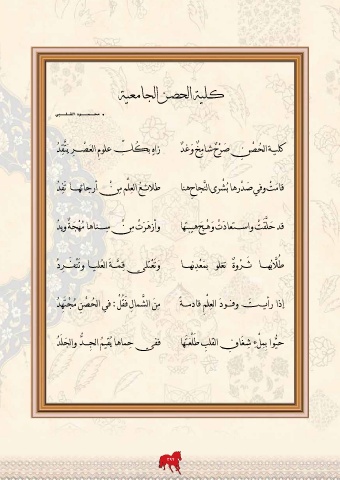 كلية الحصن الجامعية
د. محمود الشلبي
كلية الحُصْنِ صَرْحٌ شامِخٌ وَغَدٌ زاهٍ بكُلِّ علومِ العَصْرِ يتَّقِدُ
قامَتْ وفي صَدْرها بُشْرى النَّجاحِ هنا طلائعُ العِلْمِ مِنْ أرجائِها تَفِدُ
قد حلَّقَتْ واستعادَتْ وَهْجَ هيبتِها وأزهرَتْ مِنْ سناها مُهْجَةٌ ويدُ
طُلّابُها ثَرْوةٌ تعلو بمَعْدِنِها وتَعْتلي قِمَّةَ العُليا وتَنْفَرِدُ
إذا رأيتَ وفودَ العِلْمِ قادمةً مِنَ الشَّمالِ فَقُلْ: في الحُصْنِ مُجْتَهِدُ
حيُّوا بملْءِ شِغافِ القلبِ طَلْعَتَها ففي حِماها يُقيمُ الجِدُّ والجَلَدُ